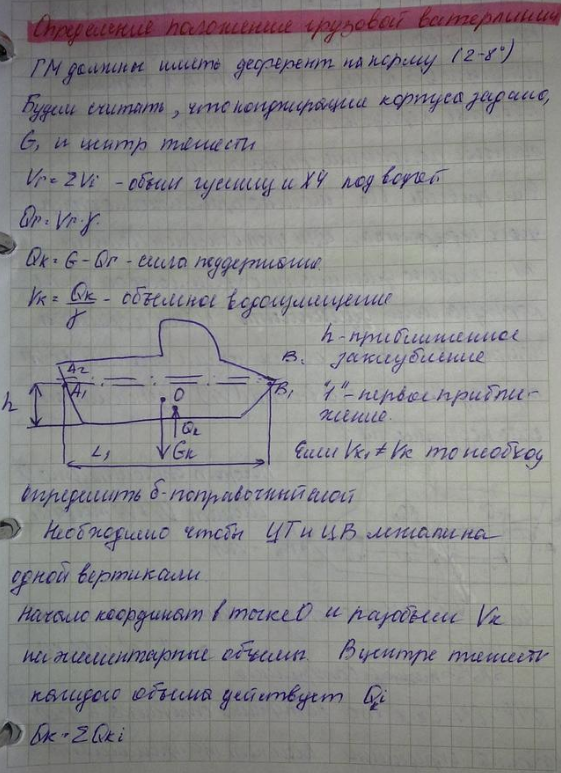 Определение положения грузовой ватерлинии
ГМ должны иметь деферент на корму (2-8°)
Будем считать, что конфигурация корпуса задано,
G, и центр тяжести
Vг = ΣVi - объём гусениц и ХЧ под водой
Qг = Vг·γ
Qк = G - Qг - сила поддержания
Vк = Qк/γ - объёмное водоизмещение
h - приближенное
заглубление
"1" - первое прибли-
жение.
A2
B2
A1
B1
h
O
Q2
Gк
L1
Если Vк1 ≠ Vк то необход
определить δ - поправочный слой
Необходимо чтобы ЦТ и ЦВ лежали на
одной вертикали
Начало координат в точке O и разобьем Vк
на элементарные объемы В центре тяжести
каждого объема действует Qкi
Qк = ΣQкi